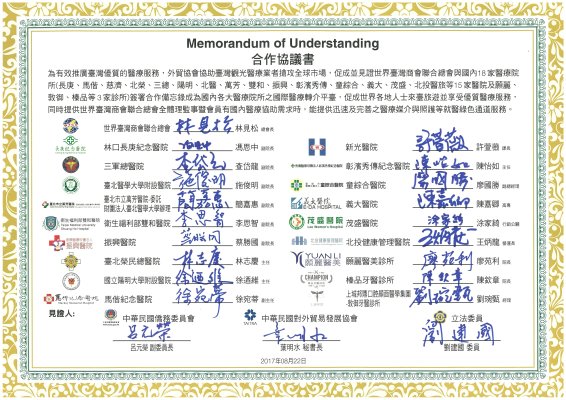 Memorandum of Understanding
合作協議書
為有效推廣臺灣優質的醫療服務，外貿協會協助臺灣觀光醫療業者搶攻全球市場，促成並見證世界臺灣商會聯合總會與國內18家醫療院
所(長庚、馬偕、慈濟、北榮、三總、陽明、北醫、萬芳、雙和、振興、彰濱秀傳、童綜合、義大、茂盛、北投醫旅等15家醫院及願麗、
敦御、榛品等3家診所)簽署合作備忘錄成為國內各大醫療院所之國際醫療轉介平臺，促成世界各地人士來臺旅遊並享受優質醫療服務，
同時提供世界臺灣商會聯合總會全體理監事暨會員有國內醫療協助需求時，能提供迅速及完善之醫療媒介與照護等就醫綠色通道服務。
世界臺灣商會聯合總會 林見松 林見松 總會長
林口長庚紀念醫院 馮思中 副院長
新光醫院 許瑩徽
三軍總醫院 查岱龍 副院長
彰濱秀傳紀念醫院 陳怡如
臺北醫學大學附設醫院 施俊明 副院長
童綜合醫院 席國勝
臺北市立萬芳醫院-委託
財團法人臺北醫學大學辦理 簡嘉惠 副院長
義大醫院 陳嘉卿
衛生福利部雙和醫院 李思智 副院長
茂盛醫院 涂家綺
振興醫院 蔡勝國 副院長
北投健康管理醫院 王炳龍
臺北榮民總醫院 林志慶
YUANLI
願麗醫美診所 廖苑利 院長
國立陽明大學附設醫院 徐迺維
CHAMPION
榛品牙醫診所 陳欽章 院長
馬偕紀念醫院 徐宛芬
劉琬甄
見證人：
中華民國僑務委員會
TAITRA
中華民國對外貿易發展協會
立法委員
呂元榮 副委員長
葉明水 秘書長
劉建國 委員
2017年08月22日